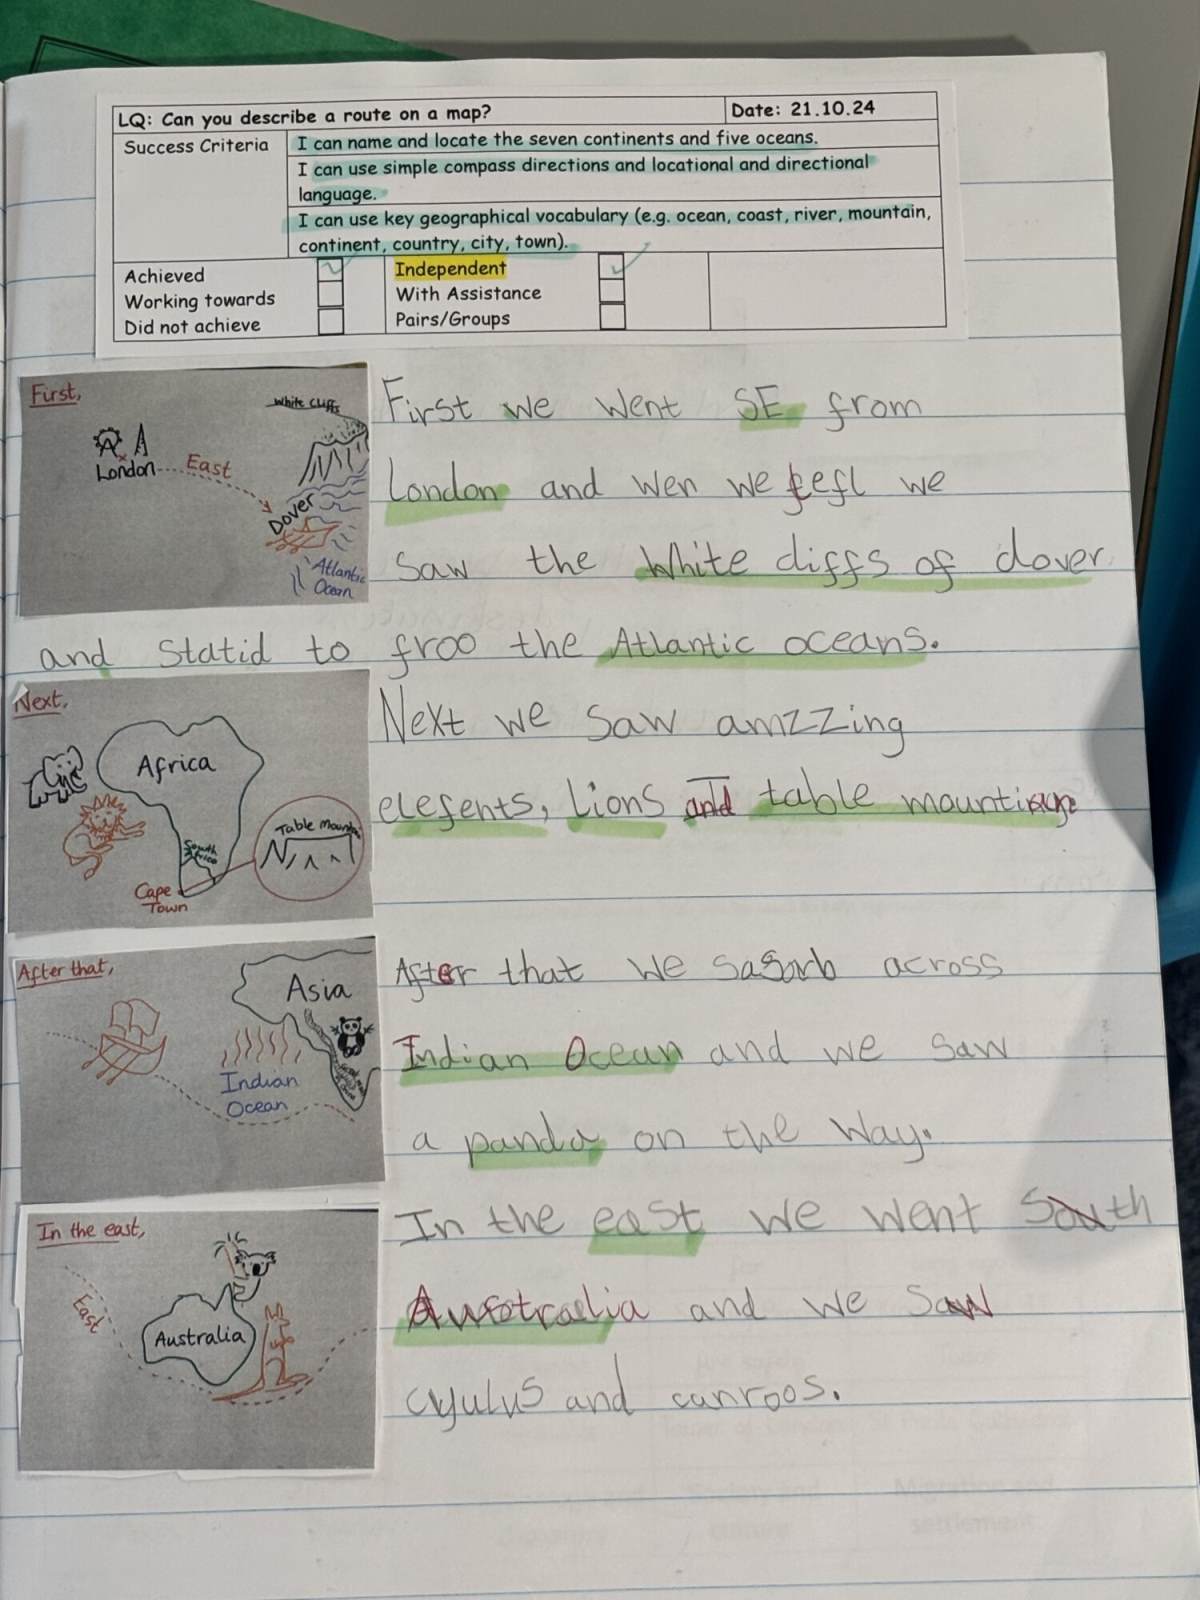 LQ: Can you describe a route on a map?
Date: 21.10.24
Success Criteria
I can name and locate the seven continents and five oceans.
I can use simple compass directions and locational and directional
language.
I can use key geographical vocabulary (e.g. ocean, coast, river, mountain,
continent, country, city, town).
Achieved
Working towards
Did not achieve
Independent
With Assistance
Pairs/Groups
First,
White Cliffs
London
East
Dover
Atlantic
Ocean
First we went SE from
London and wen we
we
saw the White cliffs of dover
and statid to froo the Atlantic oceans.
Next,
Africa
South
Africa
Table Mountain
Cape
Town
Next we saw amzzing
elefents, Lions and table
After that,
Asia
Indian
Ocean
After that we
across
Indian Ocean and we saw
a panda on the way.
In the east,
East
Australia
In the east we went South
Australia and we saw
cyulus and canroos.